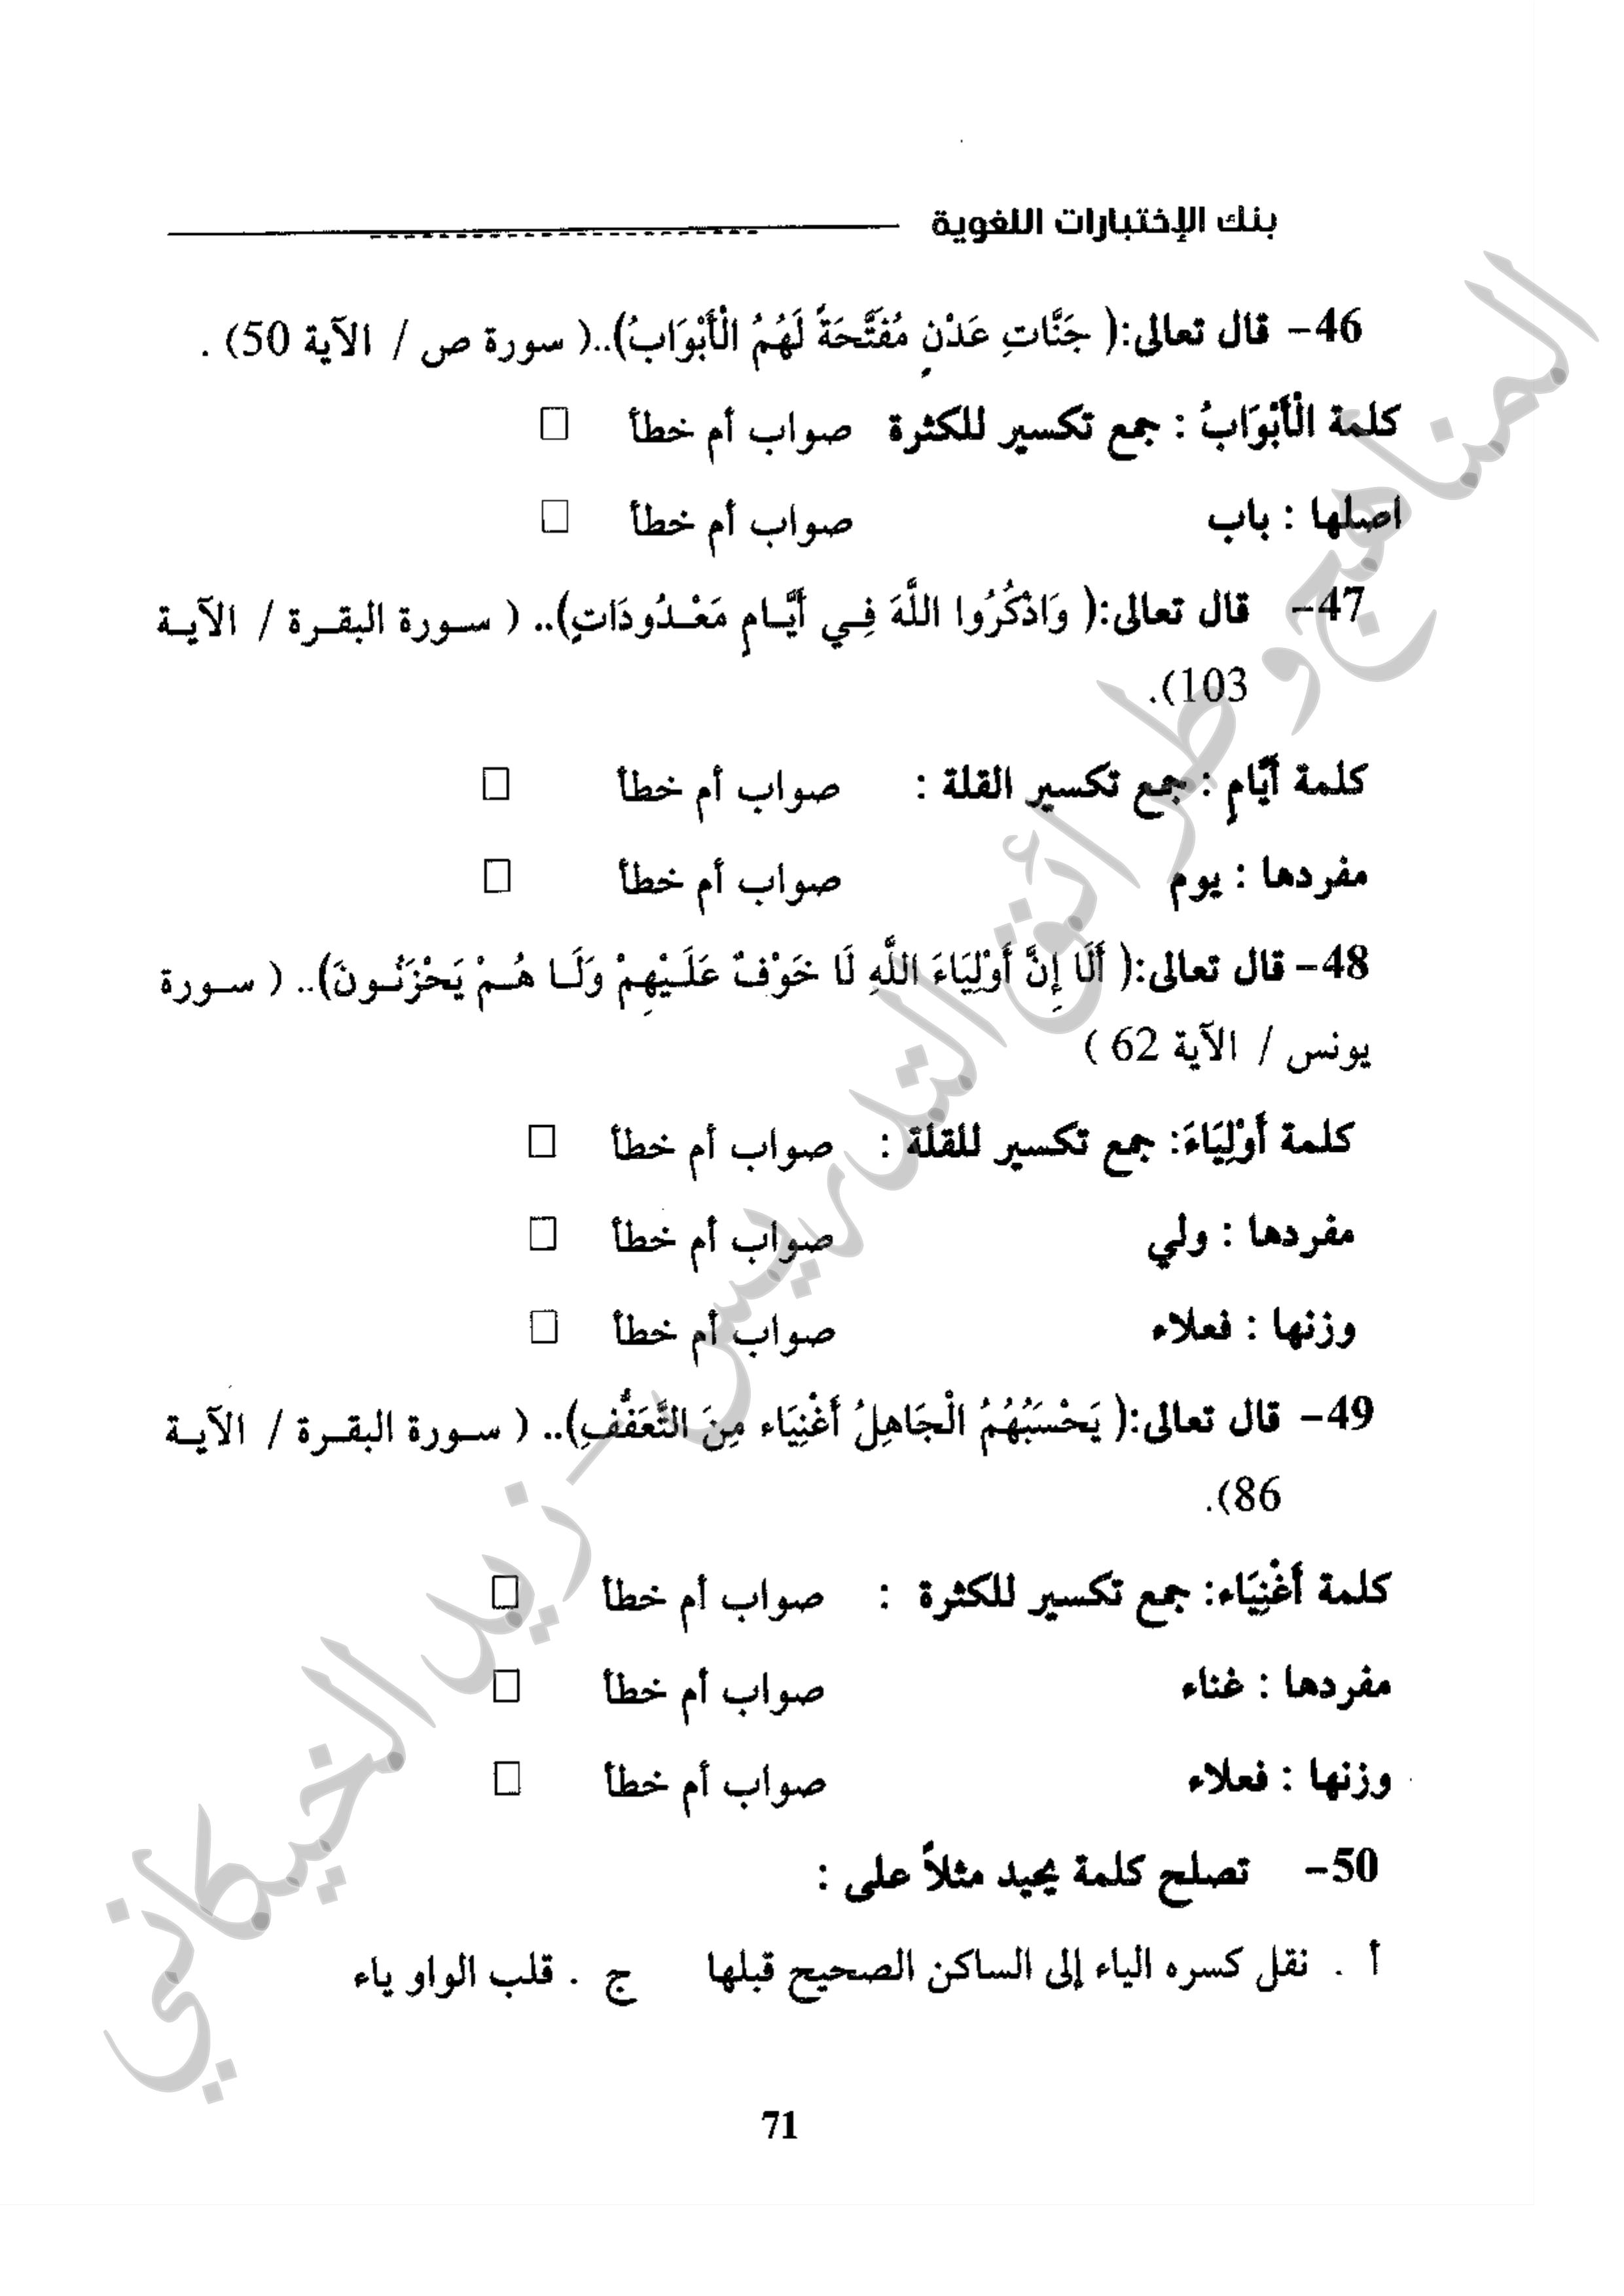 بنك الإختبارات اللغوية
46- قال تعالى:( جَنَّاتِ عَدْنٍ مُفَتَّحَةً لَهُمُ الْأَبْوَابُ)..( سورة ص / الآية 50) .
كلمة الْأَبْوَابُ : جمع تكسير للكثرة صواب أم خطأ □
اصلها : باب صواب أم خطأ □
47- قال تعالى:( وَاذْكُرُوا اللَّهَ فِي أَيَّامٍ مَعْدُودَاتٍ).. ( سورة البقرة / الآية
103).
كلمة أَيَّامٍ : جمع تكسير القلة : صواب أم خطأ □
مفردها : يوم صواب أم خطأ □
48- قال تعالى:( أَلَا إِنَّ أَوْلِيَاءَ اللَّهِ لَا خَوْفٌ عَلَيْهِمْ وَلَا هُمْ يَحْزَنُونَ).. ( سورة
يونس / الآية 62 )
كلمة أَوْلِيَاءَ: جمع تكسير للقلة : صواب أم خطأ □
مفردها : ولي صواب أم خطأ □
وزنها : فعلاء صواب أم خطأ □
49- قال تعالى:( يَحْسَبُهُمُ الْجَاهِلُ أَغْنِيَاء مِنَ التَّعَفُّفِ).. ( سورة البقرة / الآية
86).
كلمة أَغْنِيَاء: جمع تكسير للكثرة : صواب أم خطأ □
مفردها : غناء صواب أم خطأ □
وزنها : فعلاء صواب أم خطأ □
50- تصلح كلمة يحيد مثلاً على :
أ . نقل كسره الياء إلى الساكن الصحيح قبلها ج . قلب الواو ياء
71
المناهج وطرائق التدريس - زيد الخيكاني